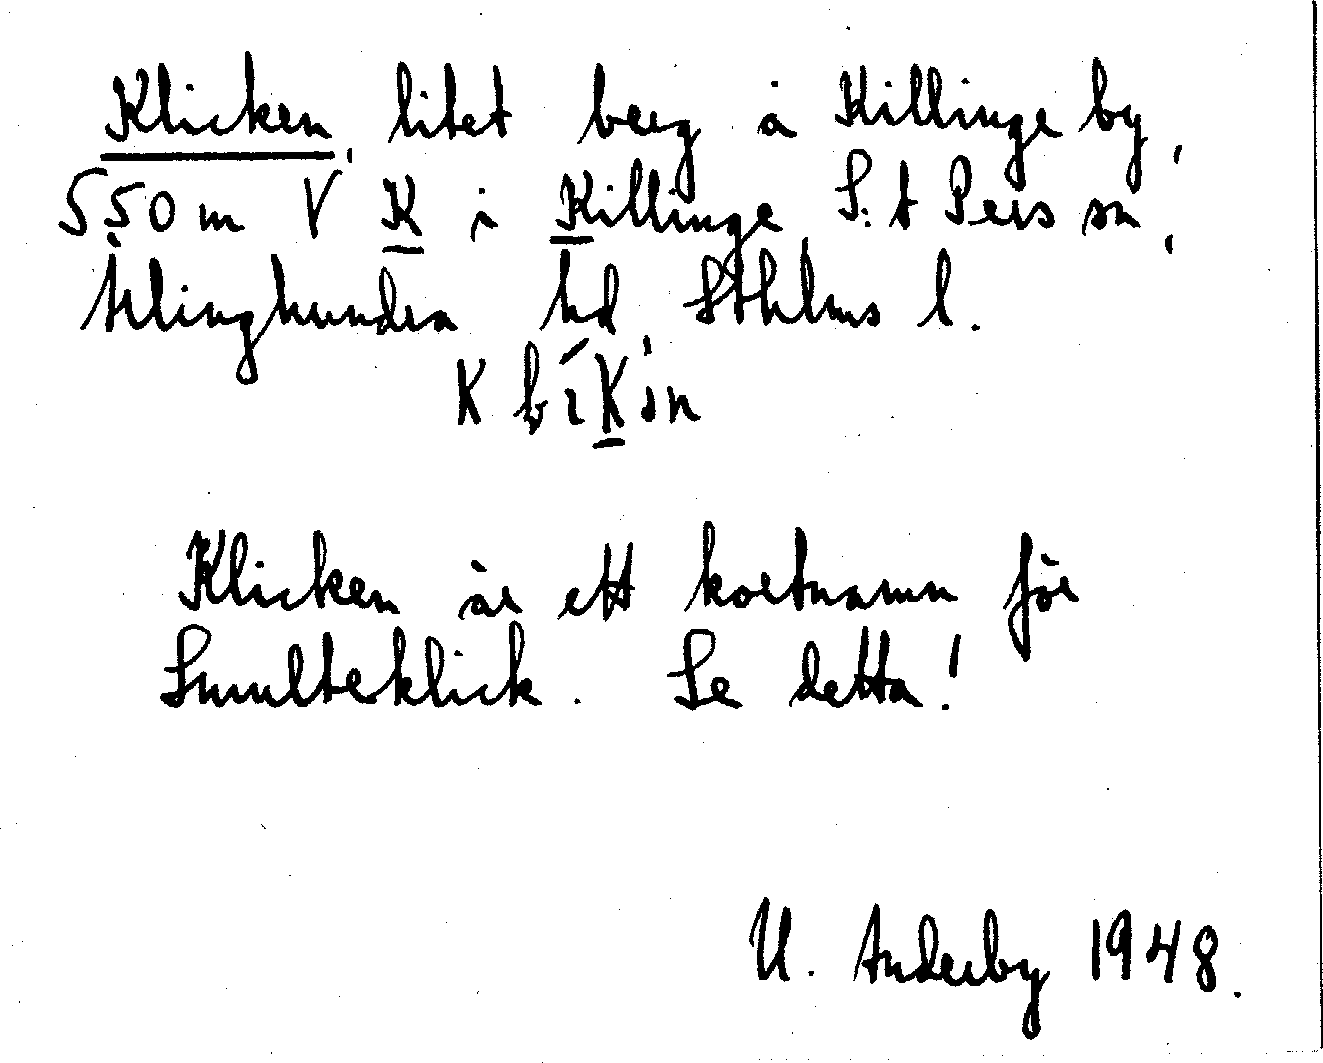 Klicken, litet berg å Killinge by,
550 m V K i Killinge S:t Pers sn,
Ärlinghundra hd, Sthlms l.
K b i K sn
Klicken är ett kortnamn för
Smulteklick. Se detta!
U. Anderby 1948.